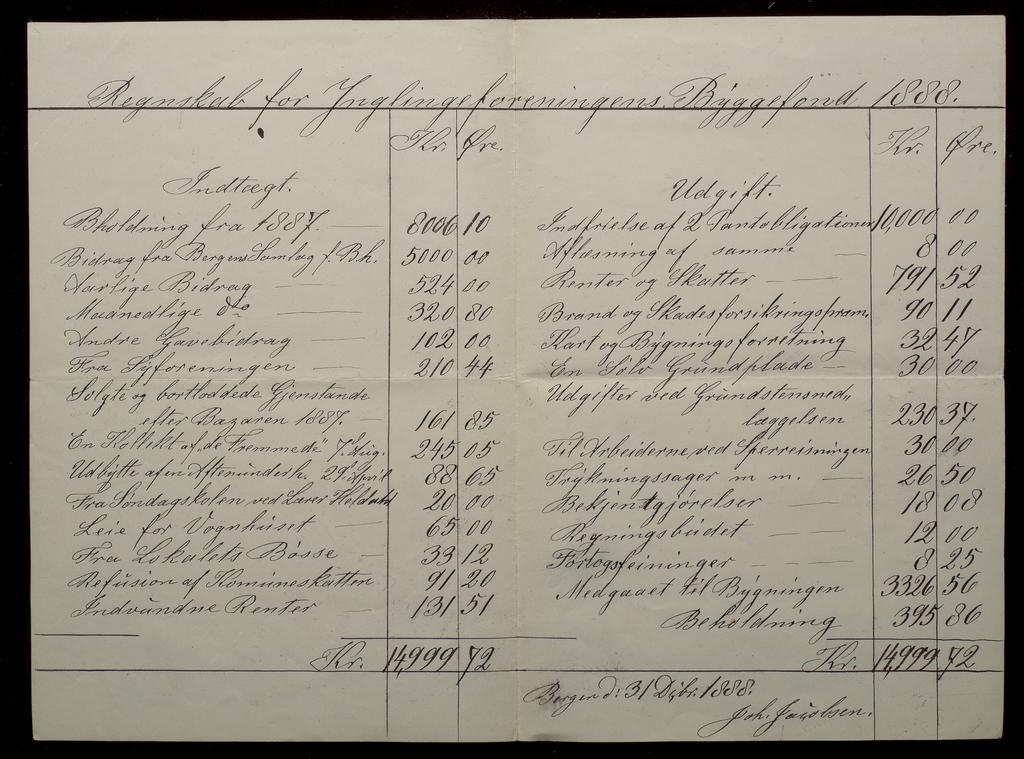 Regnskab for Ynglingeforeningens Byggefond 1888.
Kr. Øre.
Indtægt.
Bholdning fra 1887. 8006 10
Bidrag fra Bergens Samlag f. B.h. 5000 00
Aarlige Bidrag 524 00
Maanedlige do 320 80
Andre Gavebidrag 102 00
Fra Syforeningen 210 44
Solgte og bortloddede Gjenstande
efter Bazaren 1887. 161 85
En Kollekt af "de Fremmede" 7de Aug. 245 05
Udbytte af en Aftenunderh. 29de April 88 65
Fra Søndagskolen ved Lærer 20 00
Leie for Vognhuset 65 00
Fra Lokalets Bøsse 33 12
Refusion af Komuneskatten 91 20
Indvundne Renter 131 51
Kr. 14,999 72
Kr. Øre.
Udgift.
Indfrielse af 2 Pantobligationer 10,000 00
Aflæsning af samme 8 00
Renter og Skatter 791 52
Brand og Skadesforsikringspræm. 90 11
Kart og Bygningsforretning 32 47
En Sølv Grundplade 30 00
Udgifter ved Grundstensned„
læggelsen 230 37.
Til Arbeiderne ved Sperreisningen 30 00
Trykningssager m m. 26 50
Bekjentgjørelser 18 08
Regningsbudet 12 00
Fortogsfeininger 8 25
Medgaaet til Bygningen 3326 56
Beholdning 395 86
Kr. 14,999 72
Bergen d: 31 Dcbr. 1888.
Joh. Jacobsen.